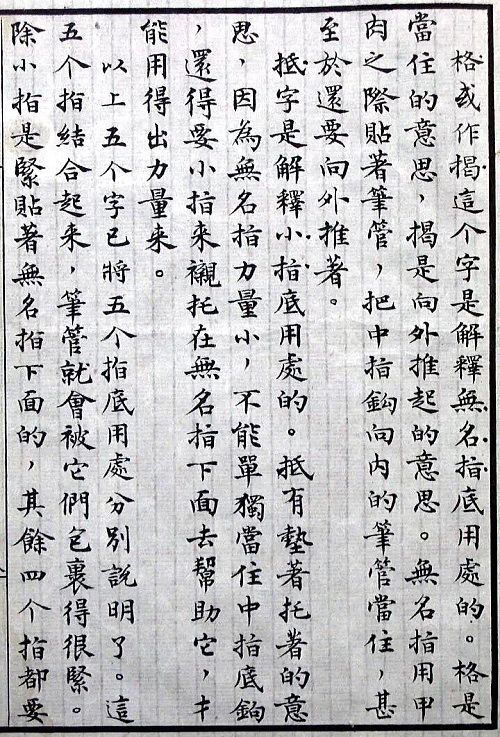 格或作揭這个字是解釋無名指底用處的。格是
當住的意思，揭是向外推起的意思。無名指用甲
肉之際貼著筆管，把中指鈎向內的筆管當住，甚
至於還要向外推著。
抵字是解釋小指底用處的。抵有墊著托著的意
思，因為無名指力量小，不能單獨當住中指底鉤
，還得要小指来襯托在無名指下面去幫助它，才
能用得出力量来。
以上五个字已將五个指底用處分別說明了。這
五个指結合起来，筆管就會被它們包裹得很緊。
除小指是緊貼著無名指下面的，其餘四个指都要